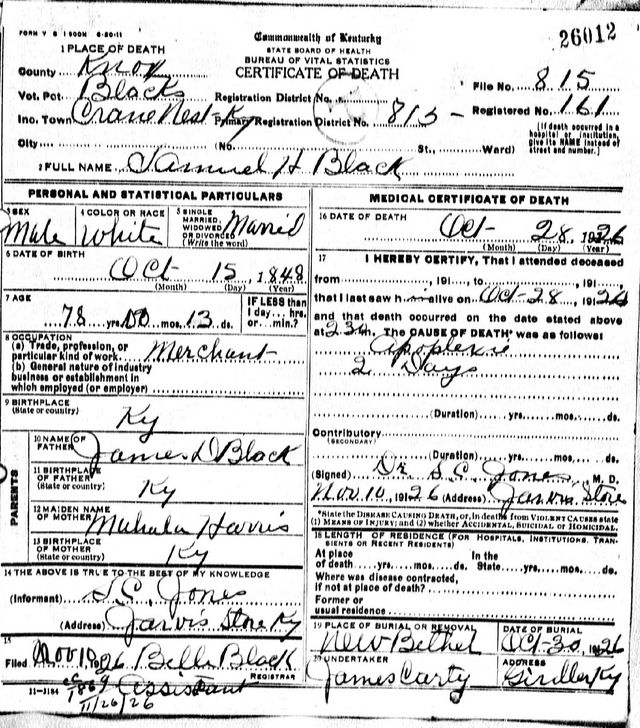 FORM V S 1 500M 6-20-11
Commonwealth of Kentucky
26012
STATE BOARD OF HEALTH
BUREAU OF VITAL STATISTICS
CERTIFICATE OF DEATH
1 PLACE OF DEATH
County Knox
Vot. Pct. Blacks
Inc. Town Crane Nest Ky
City (No. St., Ward)
Registration District No.
Primary Registration District No. 815
File No. 815
Registered No. 161
[If death occurred in a
hospital or institution,
give its NAME instead of
street and number.]
2 FULL NAME Samuel H Black
PERSONAL AND STATISTICAL PARTICULARS
3 SEX
Male
4 COLOR OR RACE
White
5 SINGLE
MARRIED,
WIDOWED
OR DIVORCED
(Write the word)
Married
6 DATE OF BIRTH
Oct 15, 1848
(Month) (Day) (Year)
7 AGE
78 yrs. mos. 13 ds.
IF LESS than
1 day... hrs.
or... min.?
8 OCCUPATION
(a) Trade, profession, or
particular kind of work Merchant
(b) General nature of industry
business or establishment in
which employed (or employer)
9 BIRTHPLACE
(State or country)
Ky
PARENTS
10 NAME OF
FATHER
James D Black
11 BIRTHPLACE
OF FATHER
(State or country)
Ky
12 MAIDEN NAME
OF MOTHER
Mahala Harris
13 BIRTHPLACE
OF MOTHER
(State or country)
Ky
14 THE ABOVE IS TRUE TO THE BEST OF MY KNOWLEDGE
(Informant) S C Jones
(Address) Jarvis Store Ky
15
Filed Nov 10 1926 Bella Black
REGISTRAR
11-3184
Assistant
11/26/26
MEDICAL CERTIFICATE OF DEATH
16 DATE OF DEATH
Oct 28, 1926
(Month) (Day) (Year)
17 I HEREBY CERTIFY, That I attended deceased
from , 191 , to , 191 ,
that I last saw h alive on Oct-28, 1926
and that death occurred on the date stated above
at m. The CAUSE OF DEATH* was as follows:
Apoplexie
2 Days
(Duration) yrs. mos. ds.
Contributory
(SECONDARY)
(Duration) yrs. mos. ds.
(Signed) Dr S. C. Jones, M. D.
Nov 10, 1926 (Address) Jarvis Store
*State the DISEASE CAUSING DEATH, or, in deaths from VIOLENT CAUSES state
(1) MEANS OF INJURY; and (2) whether ACCIDENTAL, SUICIDAL OR HOMICIDAL.
18 LENGTH OF RESIDENCE (FOR HOSPITALS, INSTITUTIONS, TRAN-
SIENTS OR RECENT RESIDENTS)
At place
of death yrs. mos. ds.
In the
State yrs. mos. ds.
Where was disease contracted,
if not at place of death?
Former or
usual residence
19 PLACE OF BURIAL OR REMOVAL
New Bethel
DATE OF BURIAL
Oct-30, 1926
20 UNDERTAKER
James Carty
ADDRESS
Girdler Ky